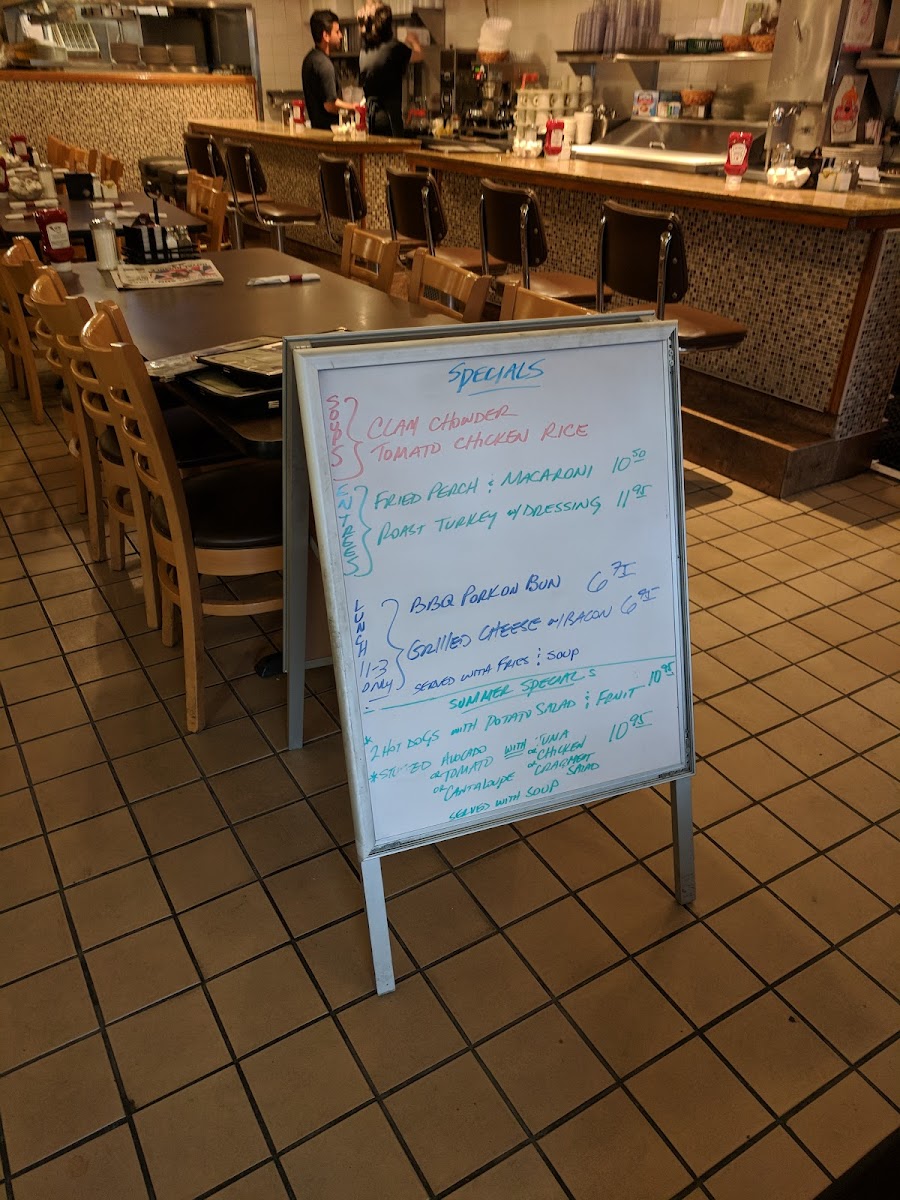 SPECIALS
SOUPS
CLAM CHOWDER
TOMATO CHICKEN RICE
ENTREES
FRIED PERCH & MACARONI 10 50
ROAST TURKEY w/ DRESSING 11 95
LUNCH
11-3
ONLY
BBQ PORK ON BUN 6 75
GRILLED CHEESE w/ BACON 6 95
SERVED WITH FRIES & SOUP
SUMMER SPECIAL'S
* 2 HOT DOGS WITH POTATO SALAD & FRUIT 10 95
* STUFFED AVOCADO WITH TUNA 10 95
OR TOMATO OR CHICKEN
OR CANTALOUPE OR CRABMEAT
SALAD
SERVED WITH SOUP